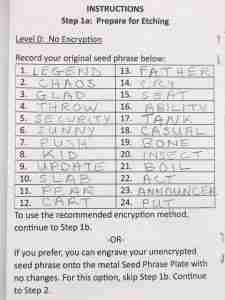 INSTRUCTIONS
Step 1a: Prepare for Etching
Level 0: No Encryption
Record your original seed phrase below:
1. LEGEND 13. FATHER
2. CHAOS 14. CRY
3. GLAD 15. SEAT
4. THROW 16. ABILITY
5. SECURITY 17. TANK
6. SUNNY 18. CASUAL
7. PUSH 19. BONE
8. KID 20. INSECT
9. UPDATE 21. BOIL
10. SLAB 22. ACT
11. FEAR 23. ANNOUNCER
12. CART 24. PUT
To use the recommended encryption method,
continue to Step 1b.
-OR-
If you prefer, you can engrave your unencrypted
seed phrase onto the metal Seed Phrase Plate with
no changes. For this option, skip Step 1b. Continue
to Step 2.